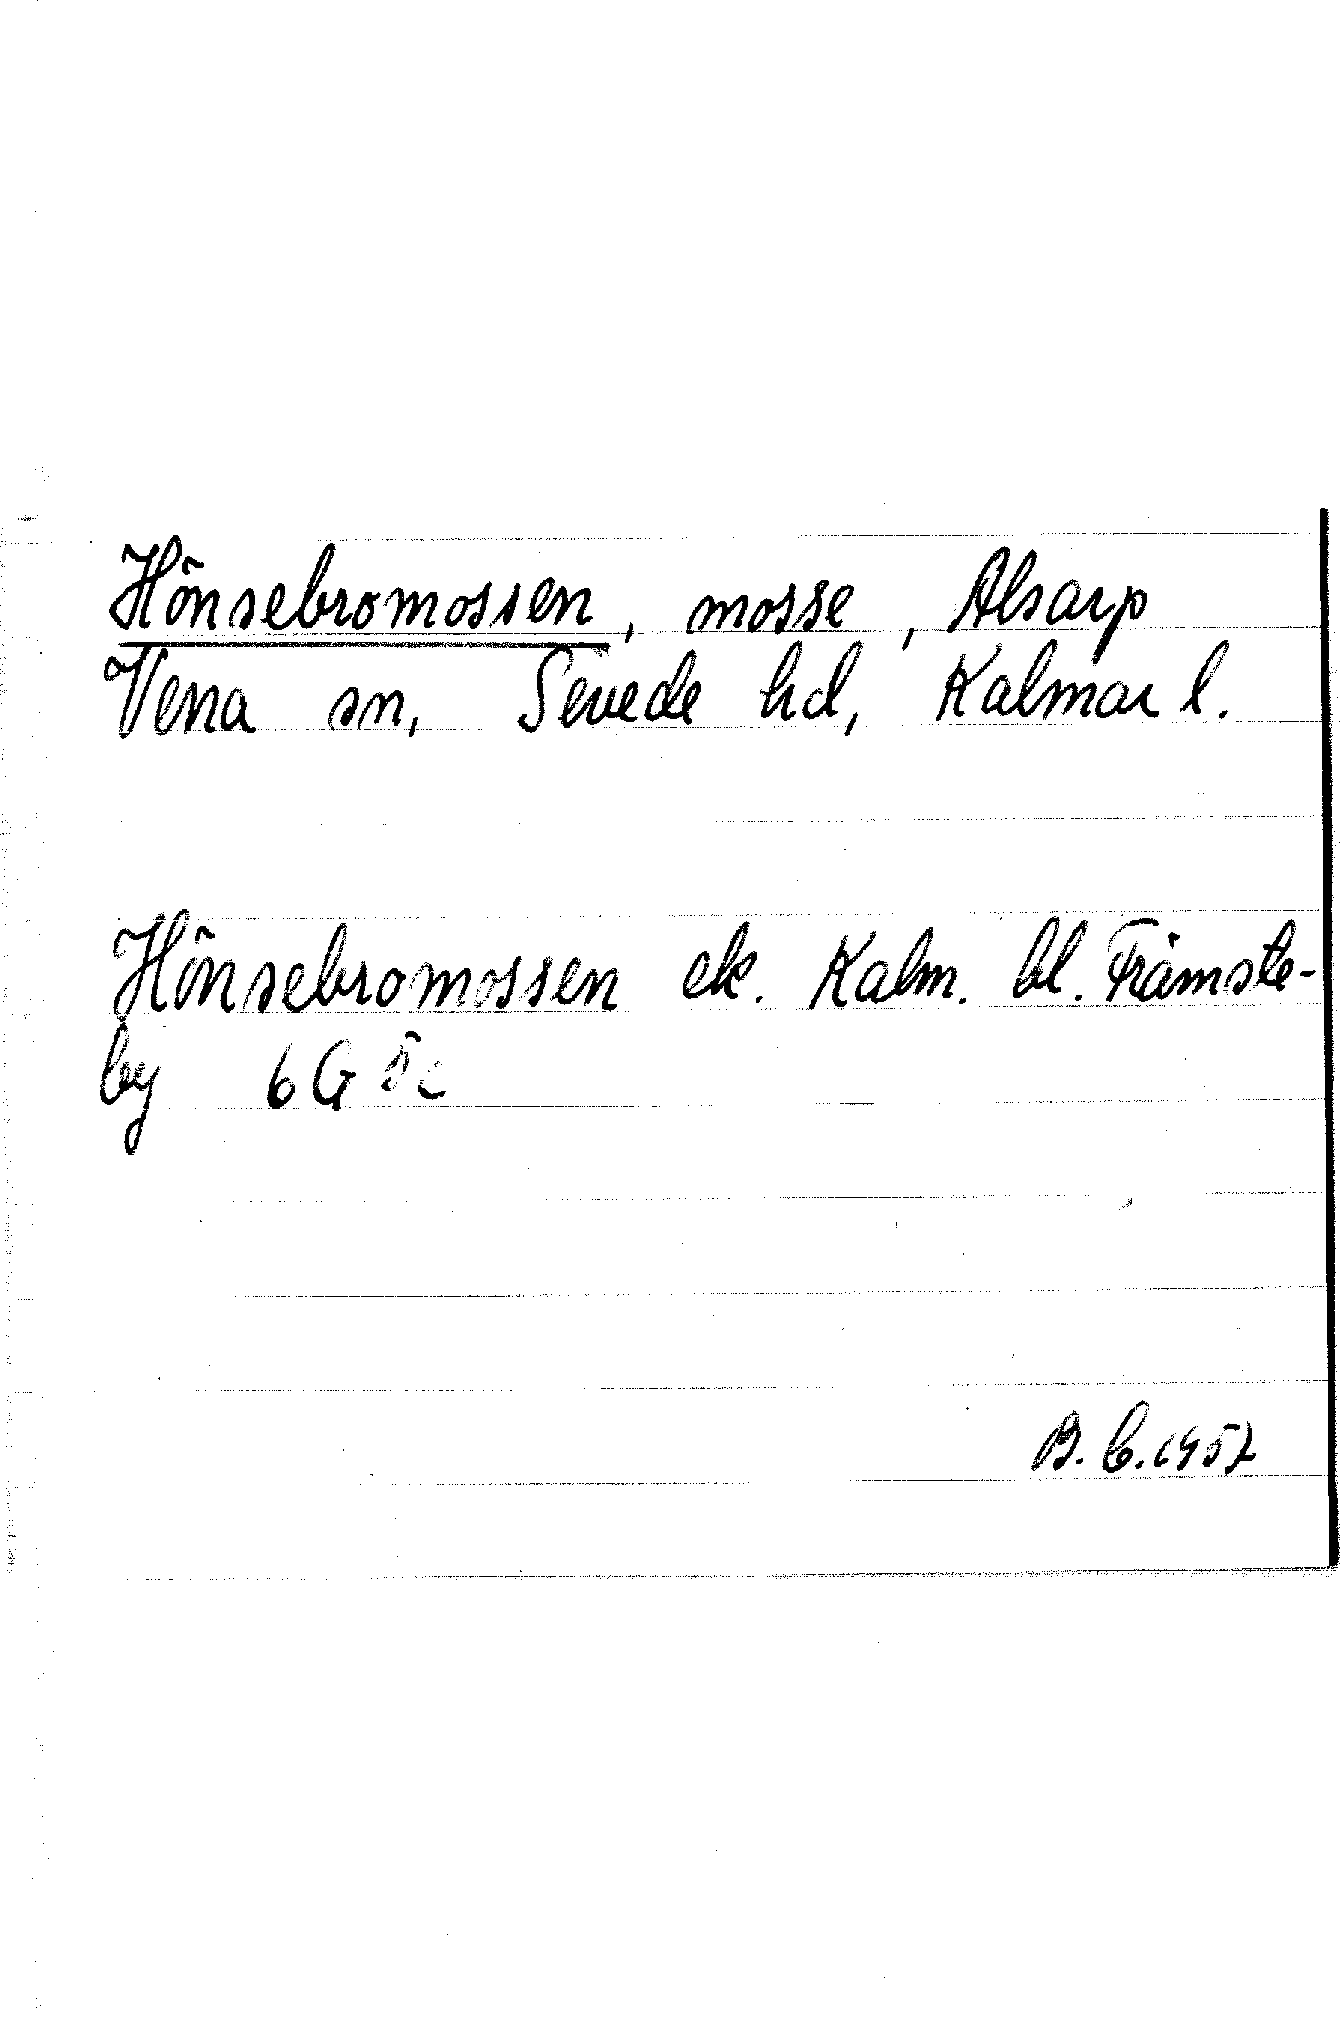 Hönsebromossen, mosse, Alsarp
Vena sn, Sevede hd, Kalmar l.
Hönsebromossen ek. Kalm. bl. Främste-
by 6 G 5c
B. C. 1957